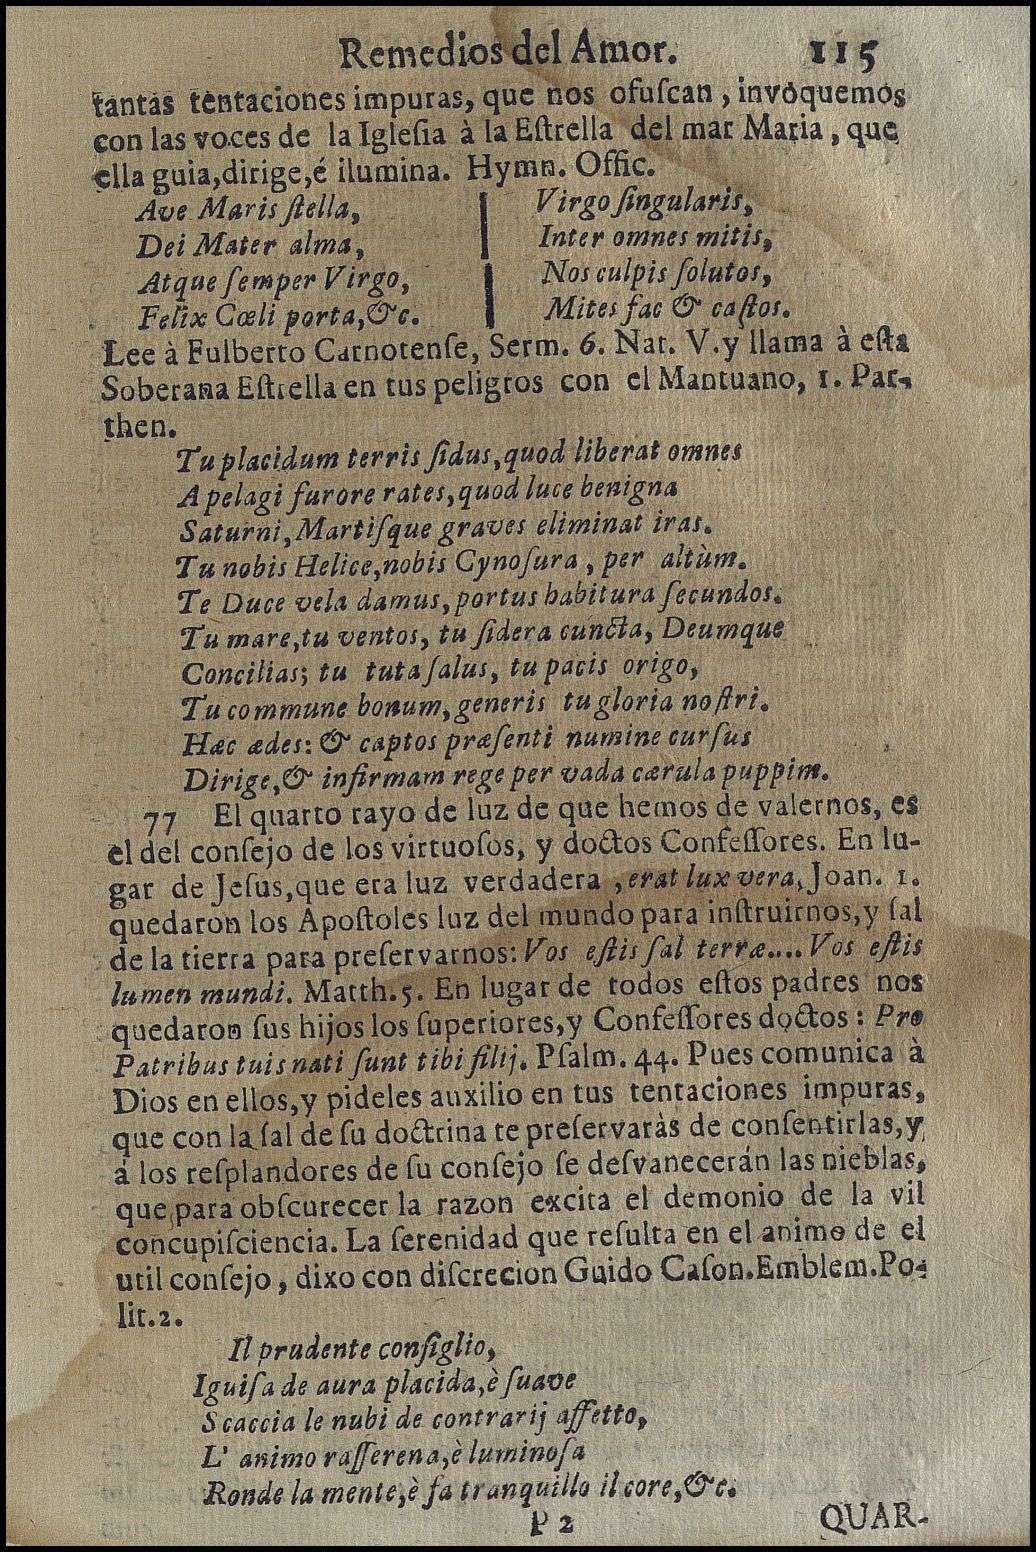 Remedios del Amor. 115
tantas tentaciones impuras, que nos ofuſcan, invòquemos
con las voces de la Igleſia à la Eſtrella del mar Maria, que
ella guia, dirige, é ilumina. Hymn. Offic.
Ave Maris ſtella,
Dei Mater alma,
Atque ſemper Virgo,
Felix Cœli porta, &c.
Virgo ſingularis,
Inter omnes mitis,
Nos culpis ſolutos,
Mites fac & caſtos.
Lee à Fulberto Carnotenſe, Serm. 6. Nat. V. y llama à eſta
Soberana Eſtrella en tus peligros con el Mantuano, 1. Par-
then.
Tu placidum terris ſidus, quod liberat omnes
A pelagi furore rates, quod luce benigna
Saturni, Martiſque graves eliminat iras.
Tu nobis Helice, nobis Cynoſura, per altùm.
Te Duce vela damus, portus habitura ſecundos.
Tu mare, tu ventos, tu ſidera cuncta, Deumque
Concilias; tu tuta ſalus, tu pacis origo,
Tu commune bonum, generis tu gloria noſtri.
Hæc ædes: & captos præſenti numine curſus
Dirige, & infirmam rege per vada cærula puppim.
77 El quarto rayo de luz de que hemos de valernos, es
el del conſejo de los virtuoſos, y doctos Confeſſores. En lu-
gar de Jeſus, que era luz verdadera, erat lux vera, Joan. 1.
quedaron los Apoſtoles luz del mundo para inſtruirnos, y ſal
de la tierra para preſervarnos: Vos eſtis ſal terræ.... Vos eſtis
lumen mundi. Matth. 5. En lugar de todos eſtos padres nos
quedaron ſus hijos los ſuperiores, y Confeſſores doctos: Pro
Patribus tuis nati ſunt tibi filij. Pſalm. 44. Pues comunica à
Dios en ellos, y pideles auxilio en tus tentaciones impuras,
que con la ſal de ſu doctrina te preſervaràs de conſentirlas, y
á los reſplandores de ſu conſejo ſe deſvanecerán las nieblas,
que para obſcurecer la razon excita el demonio de la vil
concupiſciencia. La ſerenidad que reſulta en el animo de el
util conſejo, dixo con diſcrecion Guido Caſon. Emblem. Po-
lit. 2.
Il prudente conſiglio,
Iguiſa de aura placida, è ſuave
Scaccia le nubi de contrarij affetto,
L' animo raſſerena, è luminoſa
Ronde la mente, è fa tranquillo il core, &c.
P 2 QUAR-